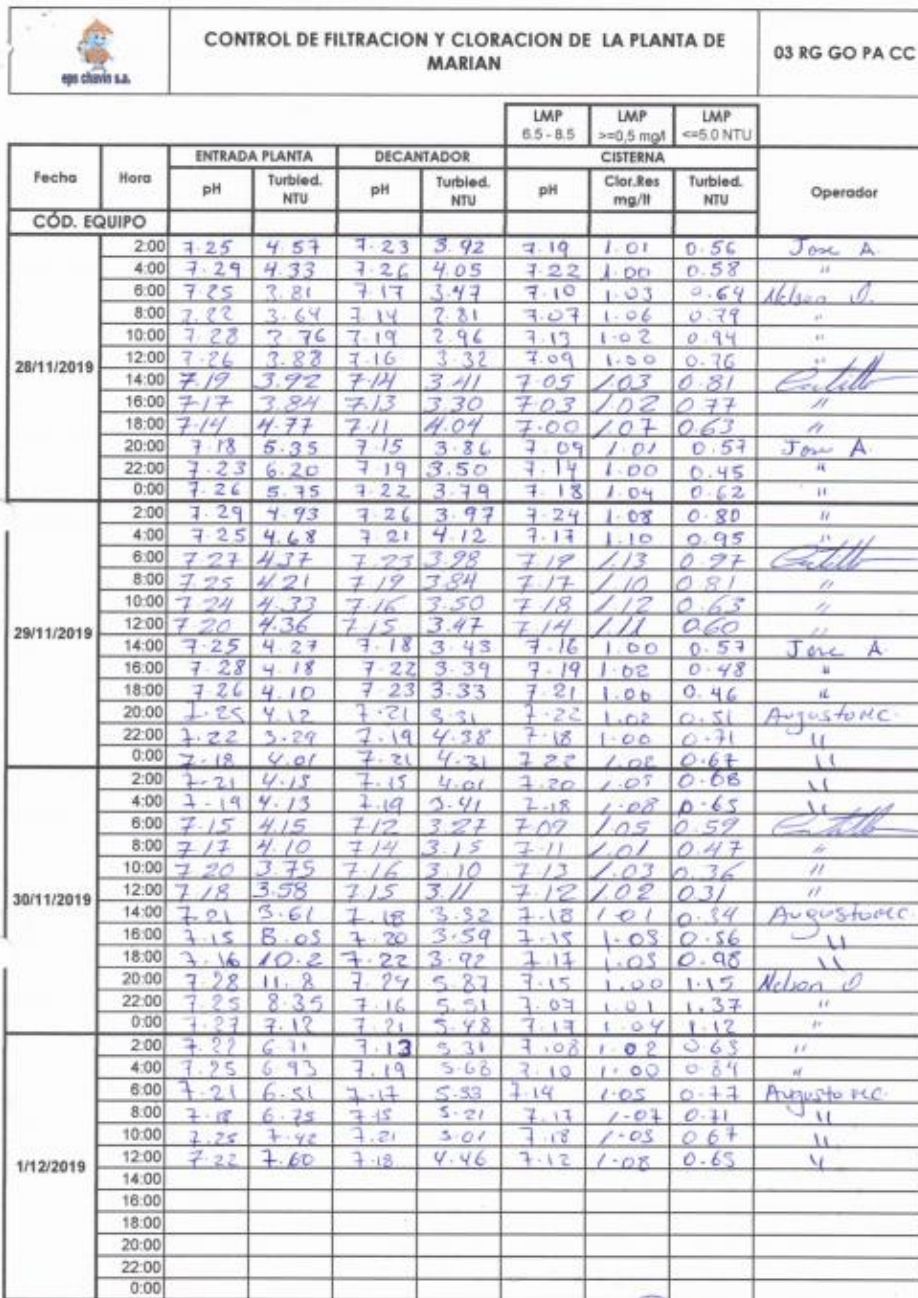 eps chavin s.a.
CONTROL DE FILTRACION Y CLORACION DE LA PLANTA DE
MARIAN
03 RG GO PA CC
LMP LMP LMP
6.5 - 8.5 >=0,5 mg/l <=5.0 NTU
ENTRADA PLANTA DECANTADOR CISTERNA
Fecha Hora pH Turbied. NTU pH Turbied. NTU pH Clor.Res mg/lt Turbied. NTU Operador
CÓD. EQUIPO
28/11/2019
2:00 7.25 4.57 7.23 3.92 7.19 1.01 0.56 Jose A.
4:00 7.29 4.33 7.26 4.05 7.22 1.00 0.58 "
6:00 7.25 3.81 7.17 3.47 7.10 1.03 0.64 Nelson
8:00 7.22 3.64 7.14 2.81 7.07 1.06 0.79 "
10:00 7.28 7.19 2.96 7.13 1.02 0.94 "
12:00 7.26 3.88 7.16 3.32 7.09 1.00 0.76 "
14:00 7.19 3.92 7.14 3.41 7.05 1.03 0.81
16:00 7.17 3.84 7.13 3.30 7.03 1.02 0.77 "
18:00 7.14 4.77 7.11 4.04 7.00 1.07 0.63 "
20:00 7.18 5.35 7.15 3.86 7.09 1.01 0.57 Jose A.
22:00 7.23 6.20 7.19 3.50 7.14 1.00 0.45 "
0:00 7.26 5.75 7.22 3.79 7.18 1.04 0.62 "
29/11/2019
2:00 7.29 4.93 7.26 3.97 7.24 1.08 0.80 "
4:00 7.25 4.68 7.21 4.12 7.17 1.10 0.95 "
6:00 7.27 4.37 7.23 3.98 7.19 1.13 0.97
8:00 7.25 4.21 7.19 3.84 7.17 1.10 0.81 "
10:00 7.24 4.33 7.16 3.50 7.18 1.12 0.63 "
12:00 7.20 4.36 7.15 3.47 7.14 1.11 0.60 "
14:00 7.25 4.27 7.18 3.43 7.16 1.00 0.57 Jose A
16:00 7.28 4.18 7.22 3.39 7.19 1.02 0.48 "
18:00 7.26 4.10 7.23 3.33 7.21 1.00 0.46 "
20:00 7.25 4.12 7.21 3.31 7.22 1.02 0.51 Augusto MC.
22:00 7.22 3.29 7.19 4.38 7.18 1.00 0.71 "
0:00 7.18 4.01 7.21 4.31 7.22 0.67 "
30/11/2019
2:00 7.21 4.15 7.15 4.01 7.20 0.68 "
4:00 7.19 4.13 7.19 3.41 7.18 1.08 0.65 "
6:00 7.15 4.15 7.12 3.27 7.09 1.05 0.59
8:00 7.17 4.10 7.14 3.15 7.11 1.01 0.47 "
10:00 7.20 3.75 7.16 3.10 7.13 1.03 0.36 "
12:00 7.18 3.58 7.15 3.11 7.12 1.02 0.31 "
14:00 7.21 3.61 7.18 3.32 7.18 1.01 0.34 Augusto MC.
16:00 7.15 7.20 3.59 7.15 0.56 "
18:00 7.16 10.2 7.22 3.92 7.17 0.98 "
20:00 7.28 11.8 7.24 5.87 7.15 1.00 1.15 Nelson
22:00 7.25 8.35 7.16 5.51 7.07 1.01 1.37 "
0:00 7.27 7.12 7.21 5.48 7.17 1.04 1.12 "
1/12/2019
2:00 7.22 6.71 7.13 5.31 7.08 1.02 0.63 "
4:00 7.25 6.93 7.19 5.68 7.10 1.00 0.84 "
6:00 7.21 6.51 7.17 5.33 7.14 1.05 0.77 Augusto MC.
8:00 7.18 6.75 7.15 5.21 7.17 1.07 0.71 "
10:00 7.25 7.42 7.21 5.01 7.18 0.67 "
12:00 7.22 7.60 7.18 4.46 7.12 1.08 0.65 "
14:00
16:00
18:00
20:00
22:00
0:00